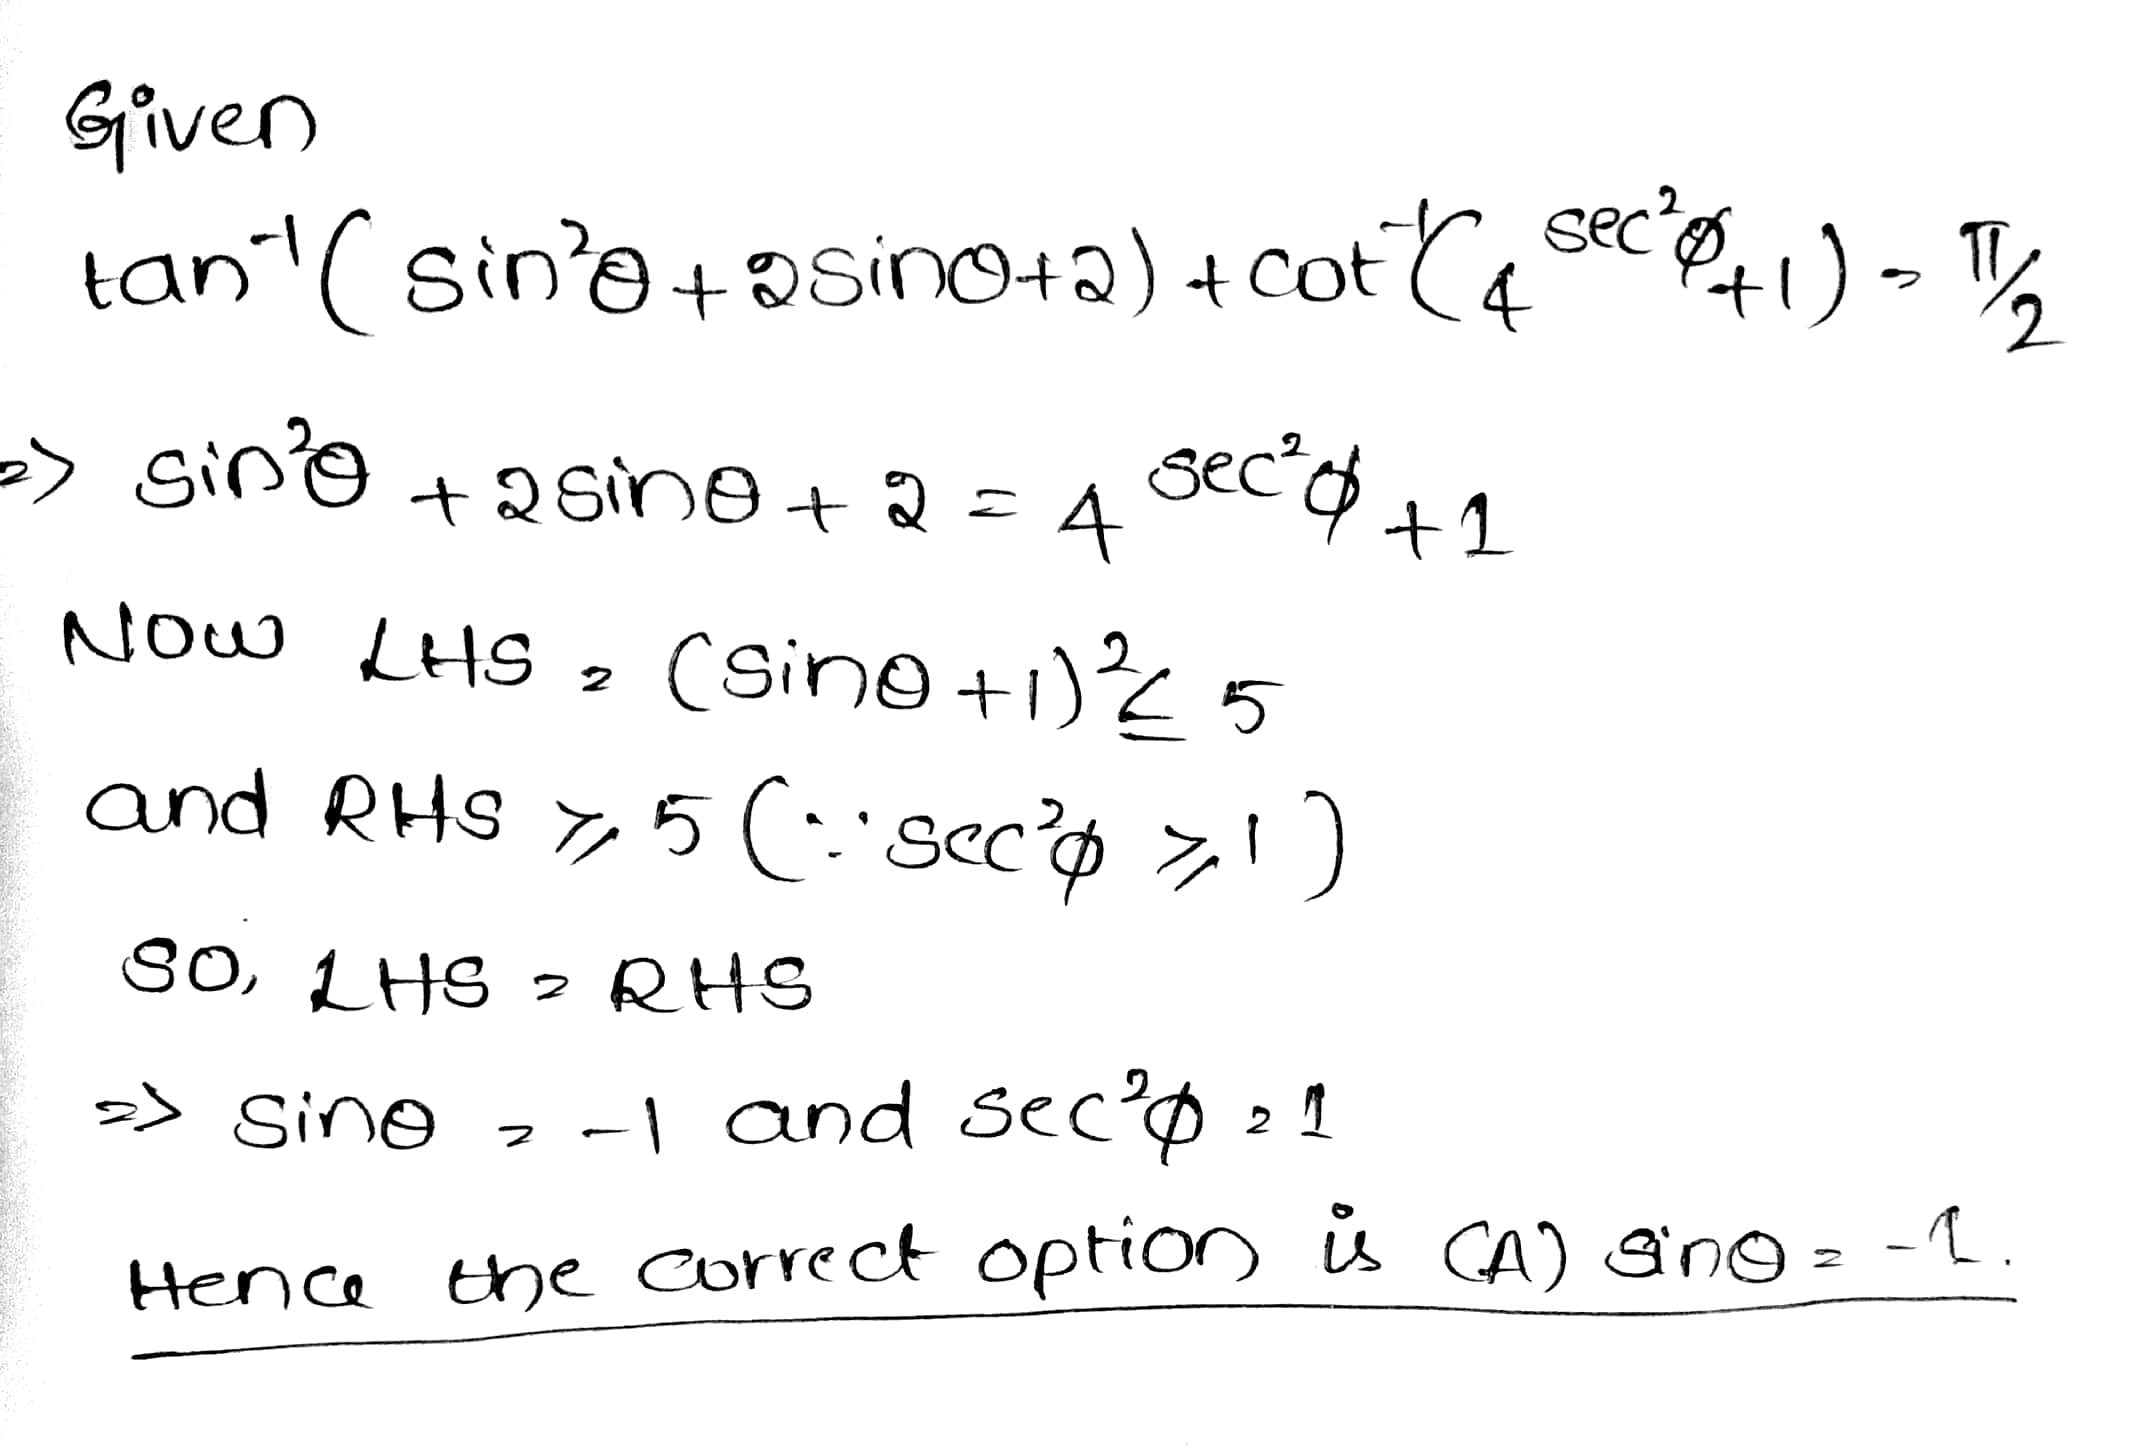 Given
tan⁻¹( sin²θ + 2sinθ+2) + cot⁻¹(4^sec²φ+1) = π/2
=> sin²θ + 2sinθ + 2 = 4^sec²φ + 1
Now LHS = (sinθ +1)² ≤ 5
and RHS ⩾ 5 (∵ sec²φ ⩾ 1)
SO, LHS = RHS
=> sinθ = -1 and sec²φ = 1
Hence the correct option is (A) sinθ = -1.